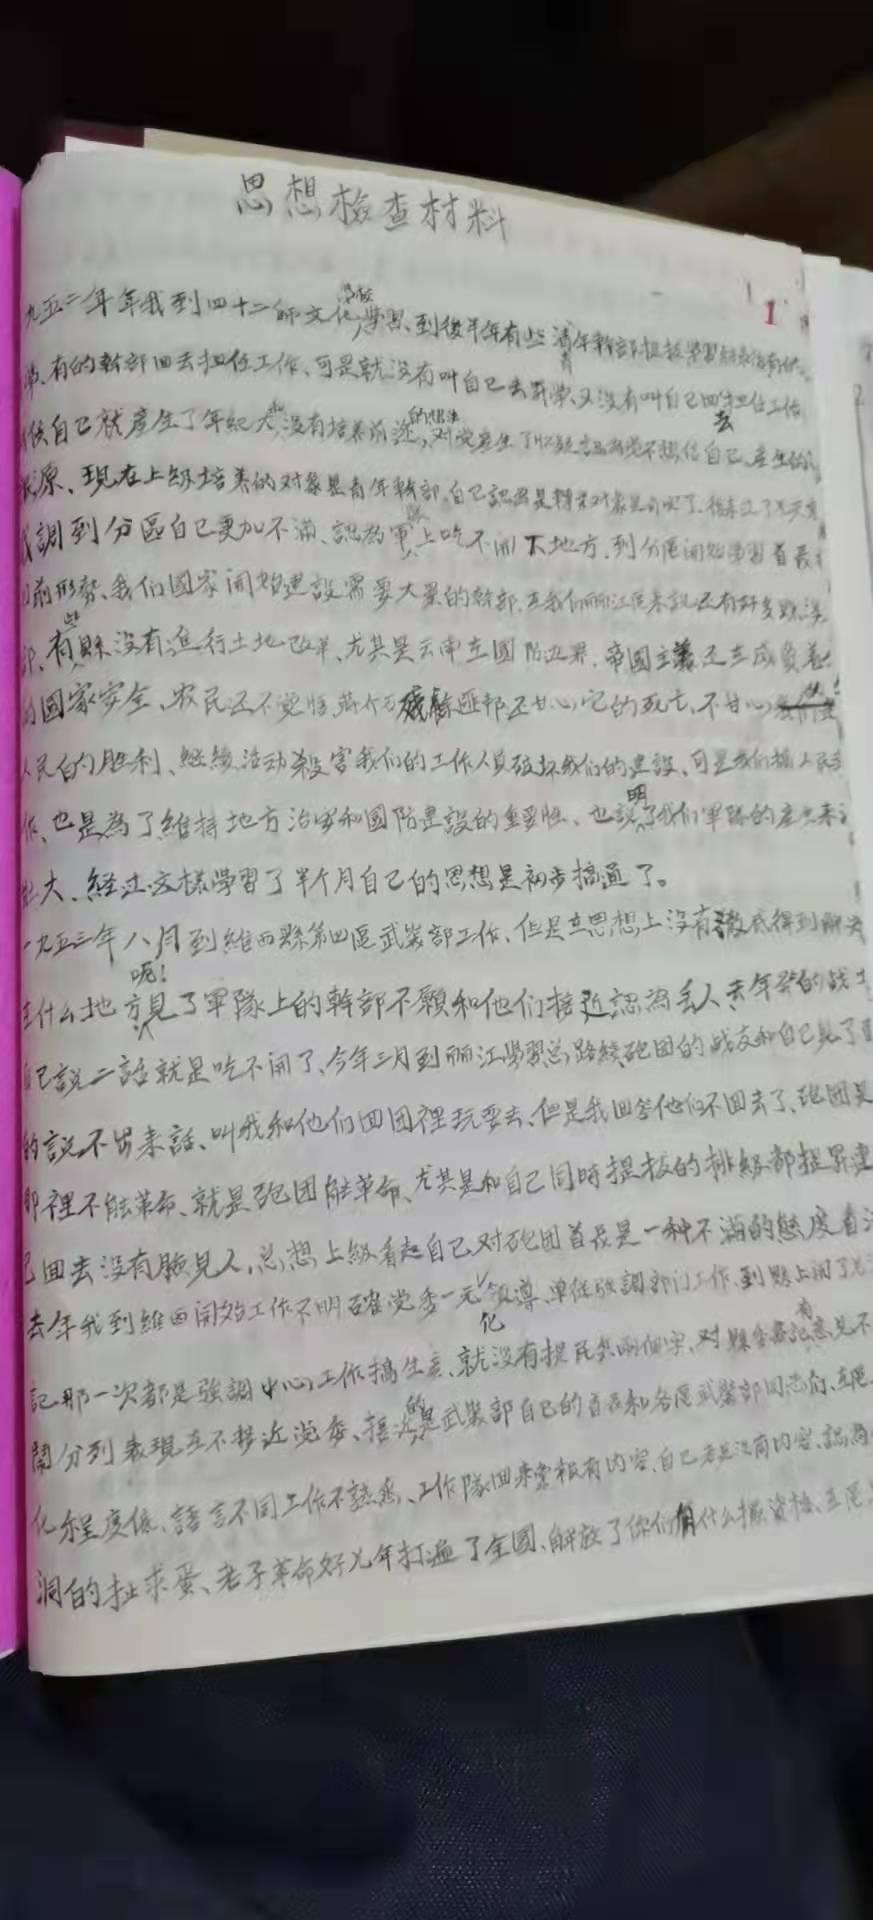 思想檢查材料
1
九五二年年我到四十二師文化學習、到後半年有些青年幹部提拔學習
有的幹部回去担任工作、可是就没有叫自己去升學、又没有叫自己回去担任工作
自己就產生了年紀大、没有培养前途的想法、对党產生了怀疑認為党不相信自己、產生的
根源、現在上級培养的对象是青年幹部、自己認為是
調到分區自己更加不滿、認為軍隊上吃不開下地方、到分區開始學習首長
目前形勢、我们國家開始建設需要大量的幹部、在我们丽江區來說还有好多縣没
部、有些縣没有進行土地改革、尤其是云南在國防边界、帝國主義还在威負着
的國家安全、农民还不覚悟蒋介石殘餘匪邦还甘心它的死亡、不甘心
人民的胜利、継続活动殺害我们的工作人員破坏我们的建設、可是我们搞人民
作、也是為了維持地方治安和國防建設的重要性、也説明了我们軍隊的產生來
壮大、経过这樣學習了半个月自己的思想是初步搞通了。
一九五三年八月到維西縣第四區武裝部工作、但是在思想上没有澈底得到解决
在什么地方呢！見了軍隊上的幹部不願和他们接近認為丢人去年癸的战士
自己說二話就是吃不開了、今年三月到丽江學習总路綫砲团的战友和自己見了面
的說不出来話、叫我和他们回团裡玩耍去、但是我回答他们不回去了、砲团是
那裡不能革命、就是砲团能革命、尤其是和自己同時提拔的排級都提昇連
己回去没有臉見人，总想上級看起自己对砲团首長是一种不滿的態度看法
去年我到維西開始工作不明確党委一元化领導、單任強調部门工作、到縣上開了
記那一次都是強調中心工作搞生產、就没有提民兵兩個字、对縣委書記有意見不
鬧分列表現在不接近党委、接近的是武裝部自己的首長和各區武裝部同志们、在區
化程度低、語言不同工作不熟悉、工作隊回来彙報有内容、自己老是没有内容、認為
洞的扯求蛋、老子革命好几年打遍了全國、解放了你们有什么摆資格、在區